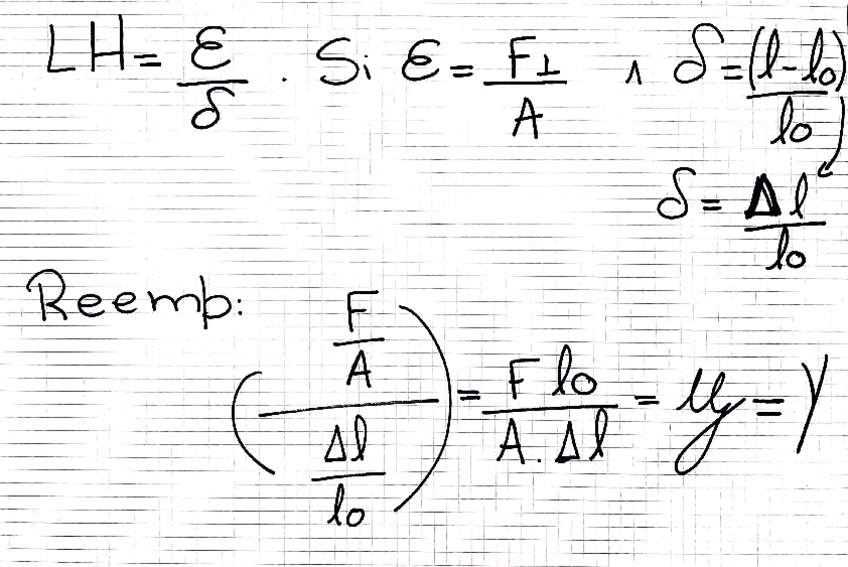 LH = ε/δ . Si ε = F⊥/A ∧ δ = (l-lo)/lo
δ = Δl/lo
Reemb:
((F/A)/(Δl/lo)) = F lo/A . Δl = y = Y